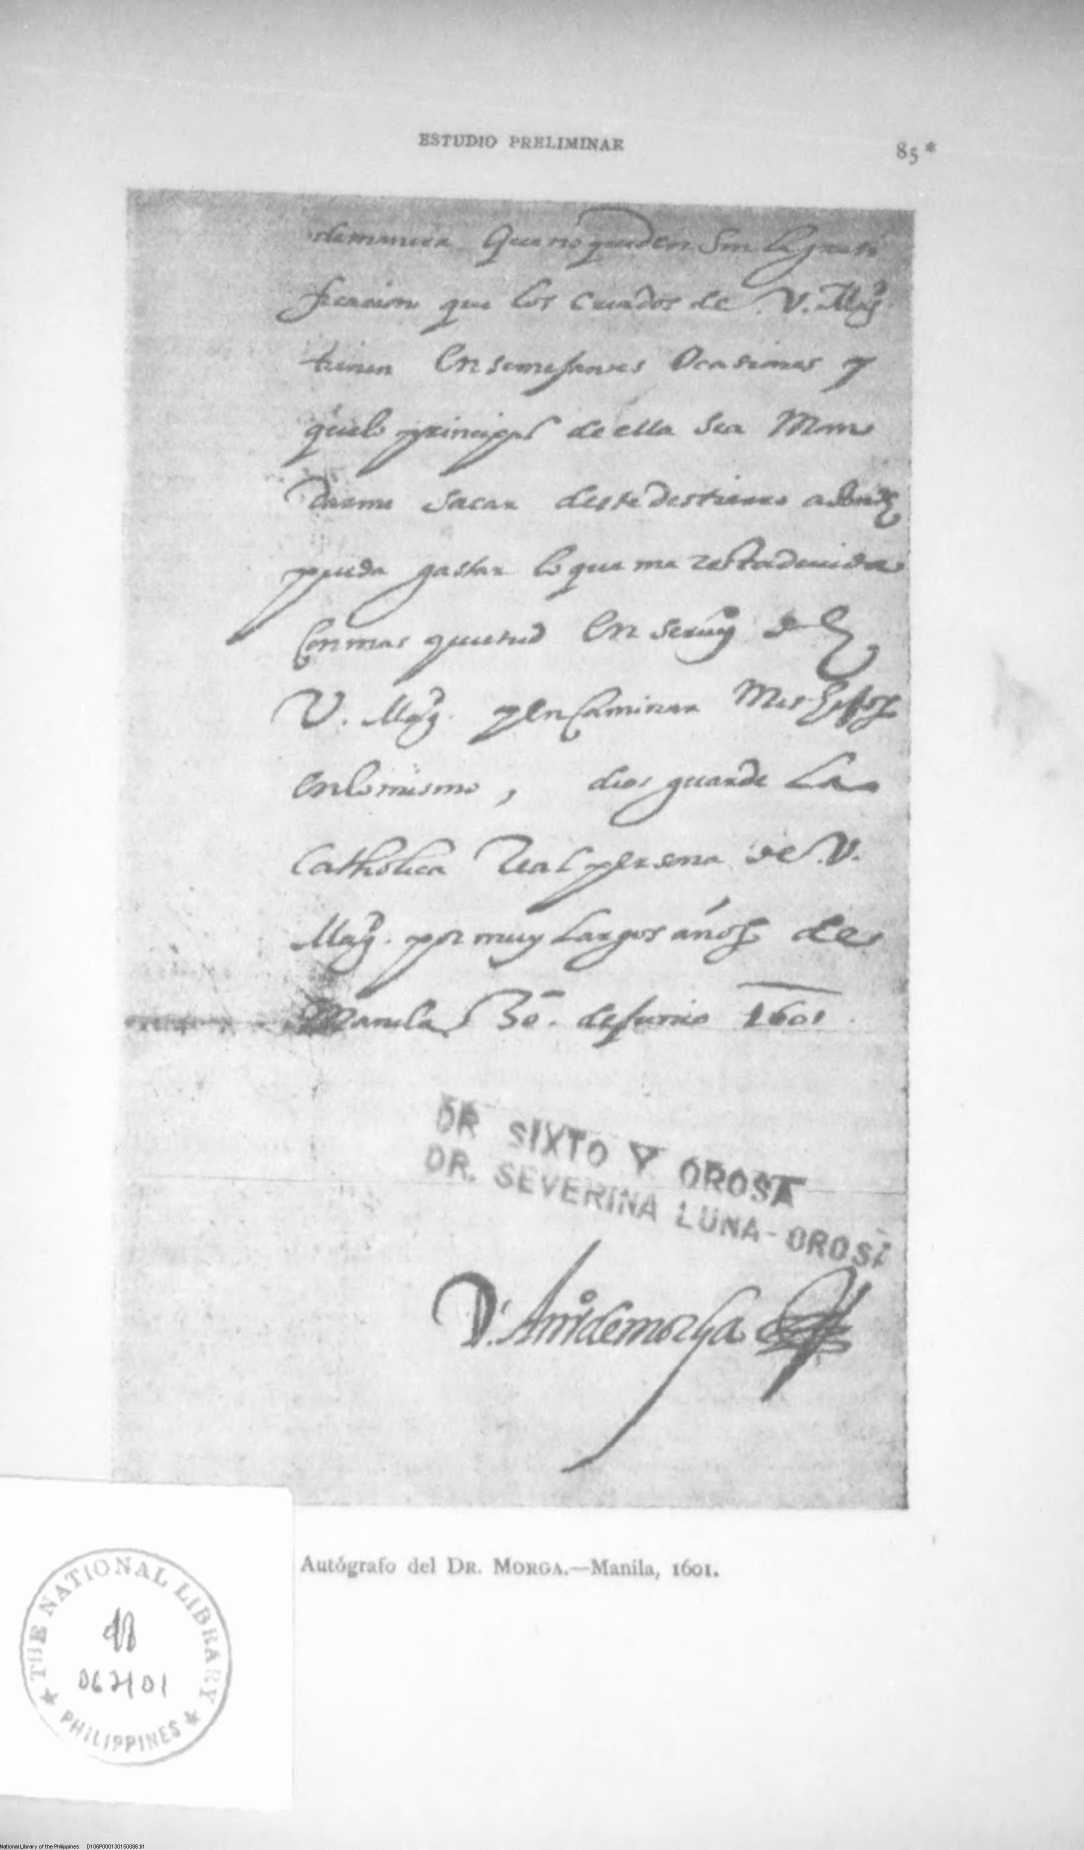 ESTUDIO PRELIMINAR
85*
de manera Que no queden Sin la grati
ficacion que los criados de V. Magd
tienen En semejantes Ocasiones y
quelo principal de ella sea Man
darme sacar deste destierro adonde
pueda gastar lo que me resta de vida
Con mas quietud En seruiº de
V. Magd. y en Caminar Mis hijos
en lo mismo, dios guarde La
Catholica Real persona de V.
Magd. por muy Largos años de
Manila 30. de Junio 1601.
DR SIXTO Y OROSA
DR. SEVERINA LUNA-OROSA
Dr. Antº de morga
Autógrafo del DR. MORGA.—Manila, 1601.
THE NATIONAL LIBRARY
062101
PHILIPPINES
National Library of the Philippines